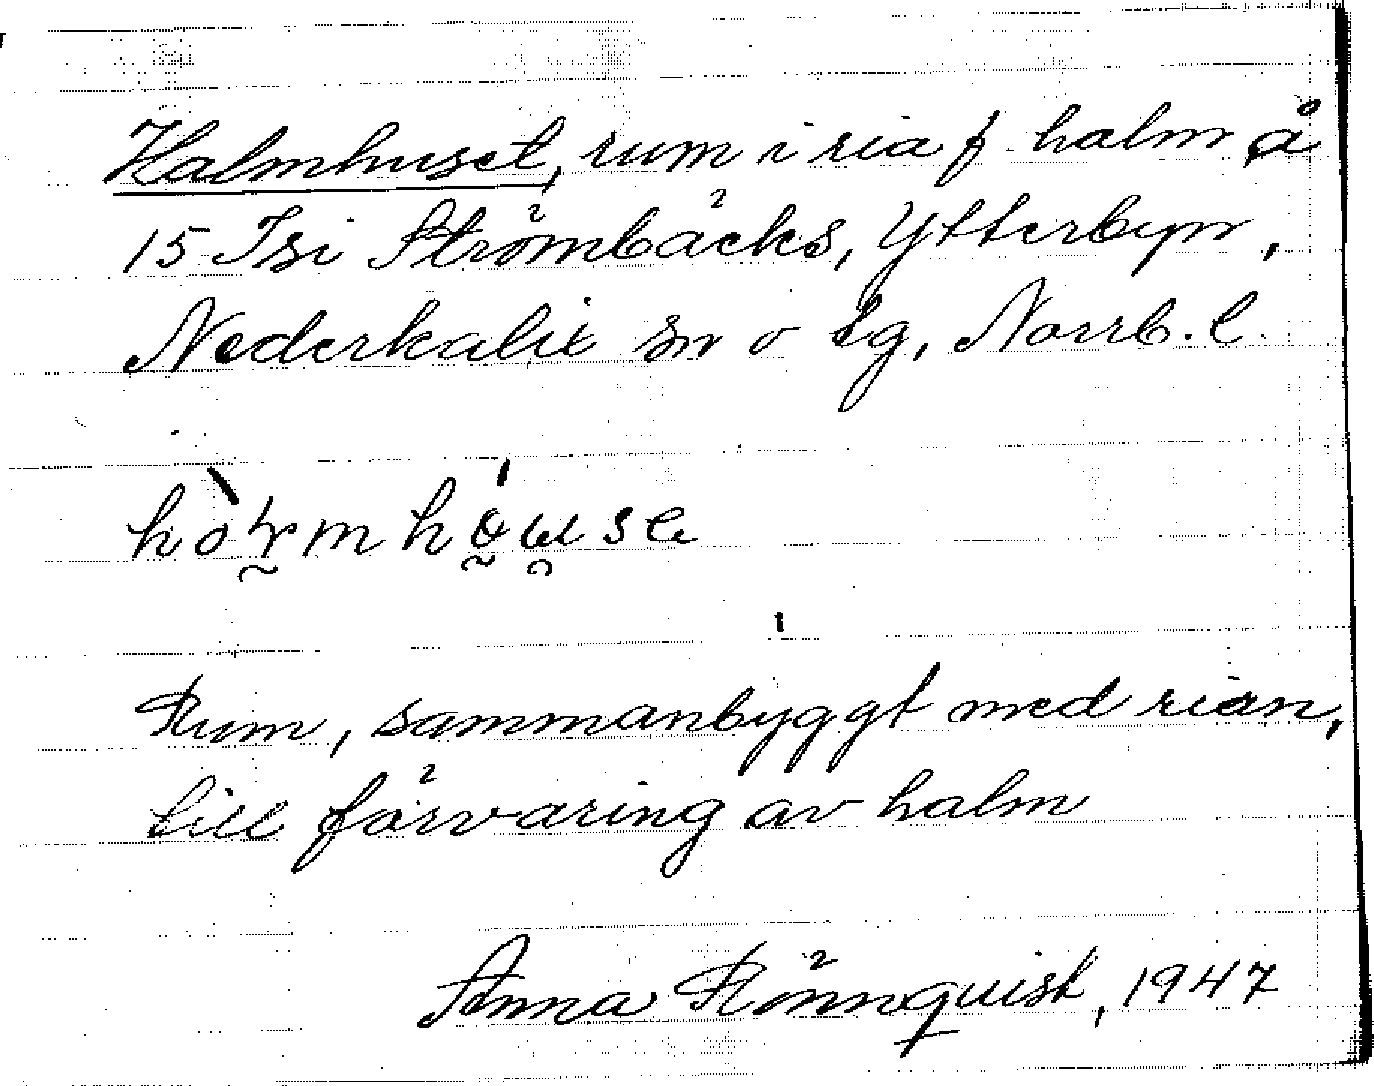 Halmhuset, rum i ria f halm å
15 Isi Strömbäcks, Ytterbyn,
Nederkalix sn o tg, Norrb. l.
Rum, sammanbyggt med rian,
till förvaring av halm
Anna Rönnquist, 1947